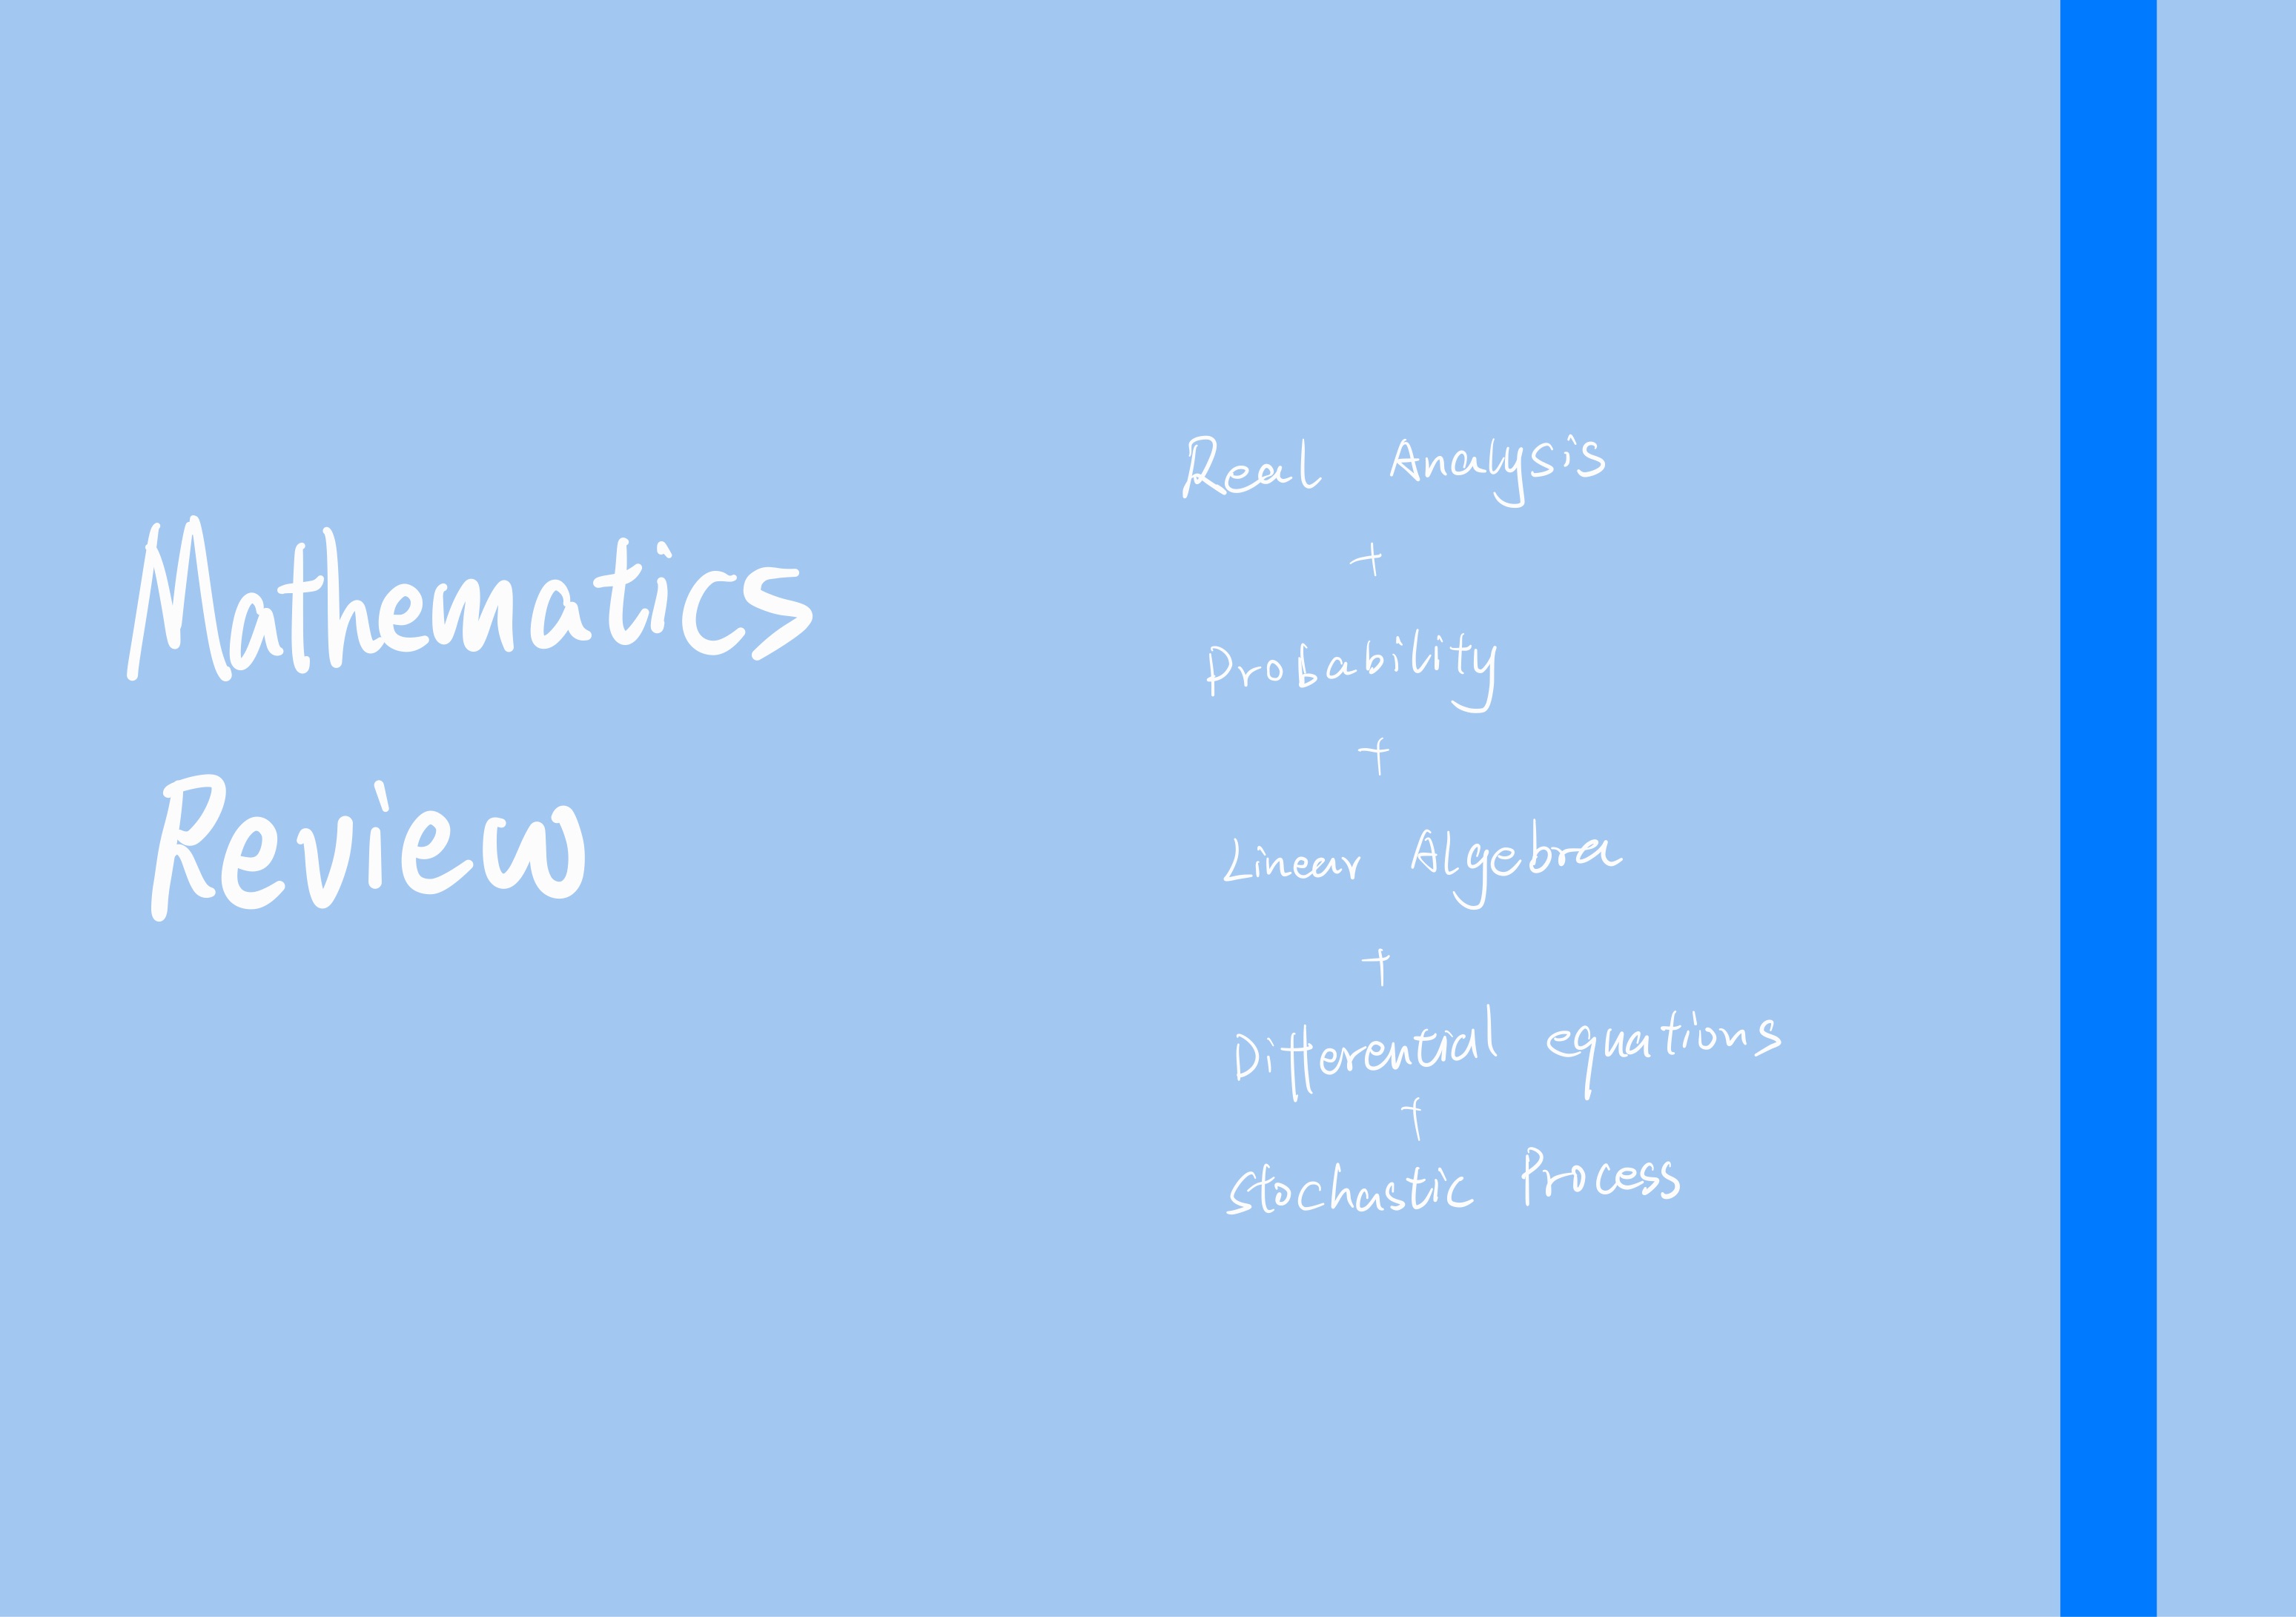 Mathematics
Review
Real Analysis
+
Probability
+
Linear Algebra
+
Differential equations
+
Stochastic Process